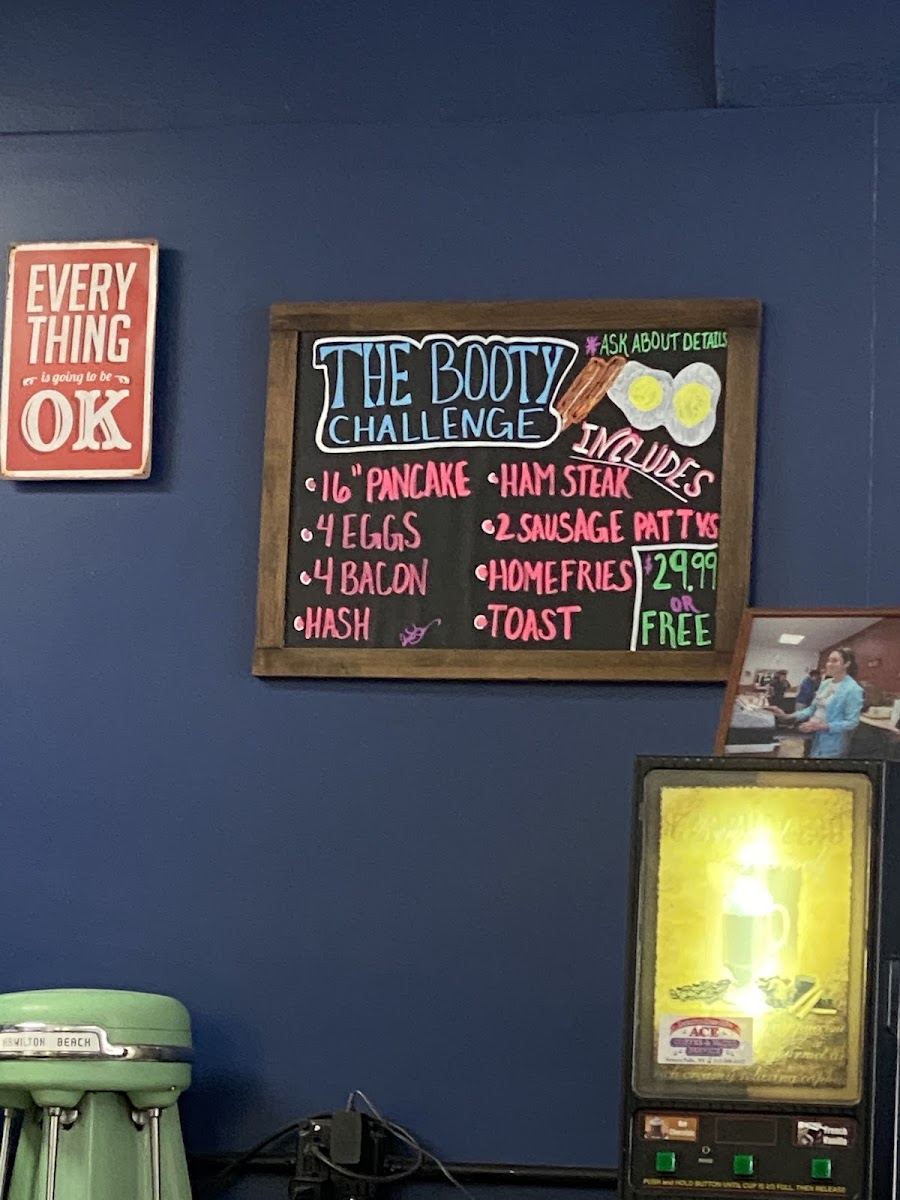 EVERY
THING
is going to be
OK
THE BOOTY
CHALLENGE
*ASK ABOUT DETAILS
INCLUDES
•16" PANCAKE
•4 EGGS
•4 BACON
•HASH
•HAM STEAK
•2 SAUSAGE PATTYS
•HOMEFRIES
•TOAST
$29.99
OR
FREE
HAMILTON BEACH
ACE
COFFEE & WATER
SERVICE
French
Vanilla
PUSH and HOLD BUTTON UNTIL CUP IS 2/3 FULL, THEN RELEASE